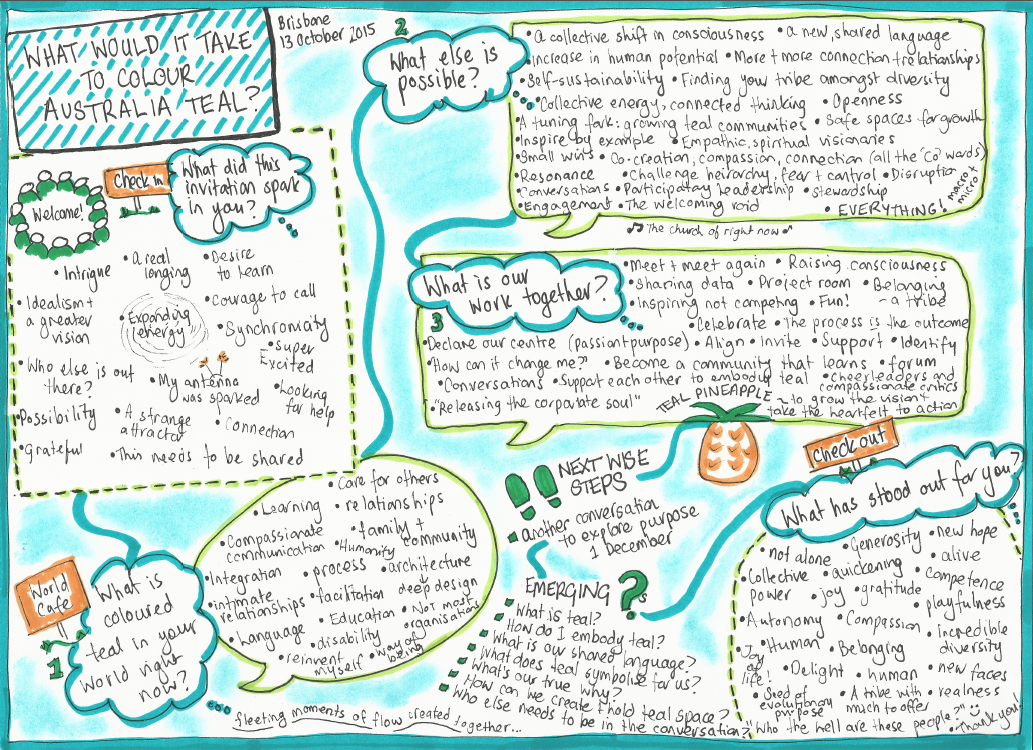 WHAT WOULD IT TAKE
TO COLOUR
AUSTRALIA TEAL?
Brisbane
13 October 2015
Welcome!
Check in
What did this
invitation spark
in you?
• Intrigue
• A real
longing
• Desire
to learn
• Idealism +
a greater
vision
• Expanding
energy
• Courage to call
• Synchronicity
• Super
Excited
• Who else is out
there?
• My antenna
was sparked
• Looking
for help
• Possibility
• A strange
attractor
• Connection
• Grateful
• This needs to be shared
World
Cafe
1
What is
coloured
teal in your
world right
now?
• Care for others
• Learning
• relationships
• Compassionate
communication
• family +
community
• Humanity
• Integration
• process
• architecture
↓
deep design
• intimate
relationships
• facilitation
• Education
• Not most
organisations
• Language
• disability
• way of
being
• reinvent
myself
fleeting moments of flow created together...
2
What else is
possible?
• A collective shift in consciousness • a new, shared language
• Increase in human potential • More + more connection + relationships
• Self-sustainability • Finding your tribe amongst diversity
• Collective energy, connected thinking • Openness
• A tuning fork: growing teal communities • Safe spaces for growth
• Inspire by example • Empathic, spirtual visionaries
• Small wins • Co-creation, compassion, connection (all the 'Co' words)
• Resonance • Challenge heirarchy, fear + control • Disruption
• Conversations • Participatory leadership • Stewardship
• Engagement • The welcoming void • EVERYTHING!
macro +
micro +
♫ The church of right now ♪
3
What is our
work together?
• Meet + meet again • Raising consciousness
• Sharing data • Project room • Belonging
- a tribe
• Inspiring not competing • Fun!
• Celebrate • The process is the outcome
• Declare our centre (passion + purpose) • Align • Invite • Support • Identify
• "How can it change me?" • Become a community that learns • forum
• Conversations • Support each other to embody teal • Cheerleaders and
compassionate critics
• "Releasing the corporate soul"
TEAL PINEAPPLE ~ to grow the vision +
take the heartfelt to action
NEXT WISE
STEPS
another conversation
to explore purpose
1 December
EMERGING ?
What is teal?
How do I embody teal?
What is our shared language?
What does teal symbolise for us?
What's our true why?
How can we create + hold teal space?
Who else needs to be in the conversation?
Check out
What has stood out for you?
• not alone
• Generosity
• new hope
• Collective
power
• quickening
• alive
• joy
• gratitude
• competence
• playfulness
• Autonomy
• Compassion
• incredible
diversity
• Joy
of
life!
• Human
• Belonging
• Delight
• human
• new faces
• Seed of
evolutionary
purpose
• A tribe with
much to offer
• realness
"Who the hell are these people?" • Thank you!